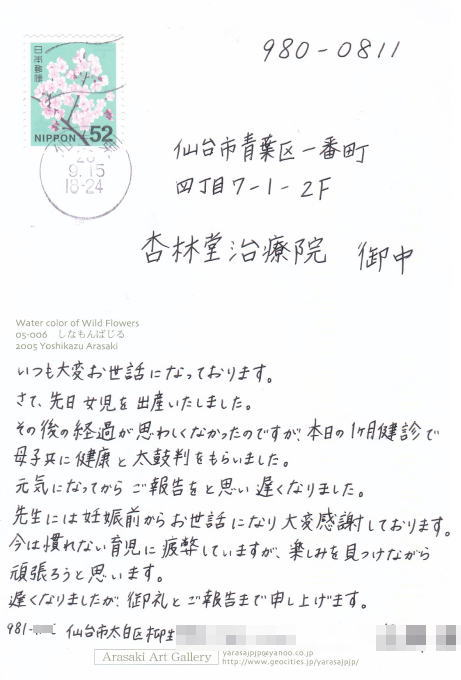 980-0811
日本郵便
NIPPON 52
9.15
18-24
仙台市青葉区一番町
四丁目7-1-2F
杏林堂治療院 御中
Water color of Wild Flowers
05-006 しなもんばじる
2005 Yoshikazu Arasaki
いつも大変お世話になっております。
さて、先日女児を出産いたしました。
その後の経過が思わしくなかったのですが、本日の1ヶ月健診で
母子共に健康と太鼓判をもらいました。
元気になってからご報告をと思い遅くなりました。
先生には妊娠前からお世話になり大変感謝しております。
今は慣れない育児に疲弊していますが、楽しみを見つけながら
頑張ろうと思います。
遅くなりましたが、御礼とご報告まで申し上げます。
981- 仙台市太白区柳生
Arasaki Art Gallery
yarasajpjp@yahoo.co.jp
http://www.geocities.jp/yarasajpjp/